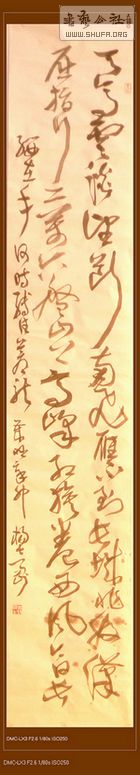 書藝公社
WWW.SHUFA.ORG
天高雲淡望断南飞雁不到长城非好漢
屈指行程二万六盤山上高峰红旗漫卷西风今日长
缨在手何时缚住苍龙
DMC-LX3 F2.6 1/80s ISO250
DMC-LX3 F2.6 1/80s ISO250